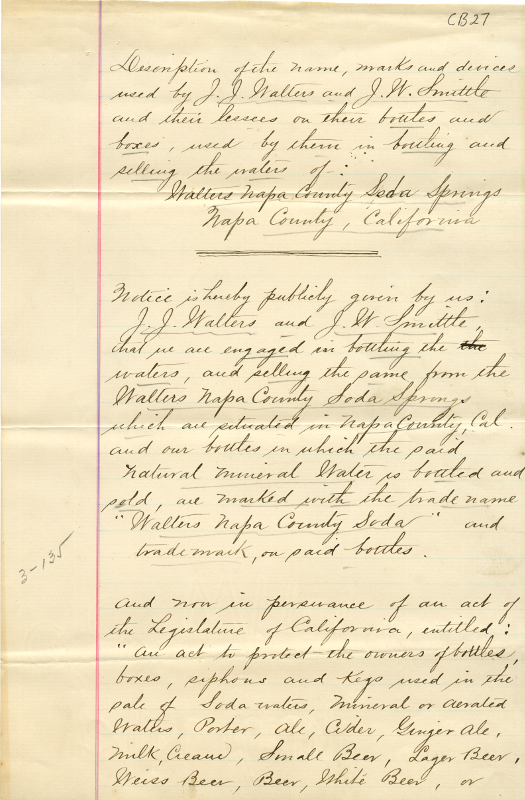 CB27
Description of the name, marks and devices
used by J. J. Walters and J. W. Smittle
and their lessees on their bottles and
boxes, used by them in bottling and
selling the waters of:
Walters Napa County Soda Springs
Napa County, California
Notice is hereby publicly given by us:
J. J. Walters and J. W. Smittle,
that we are engaged in bottling the the
waters, and selling the same from the
Walters Napa County Soda Springs
which are situated in Napa County, Cal.
and our bottles in which the said
Natural Mineral Water is bottled and
sold, are marked with the trade name
"Walters Napa County Soda" and
trademark, on said bottles.
3-135
And now in persuance of an act of
the Legislature of California, entitled:
"An act to protect the owners of bottles,
boxes, siphons and Kegs used in the
sale of Soda waters, Mineral or aerated
Waters, Porter, Ale, Cider, Ginger Ale,
Milk, Cream, Small Beer, Lager Beer,
Weiss Beer, Beer, White Beer, or